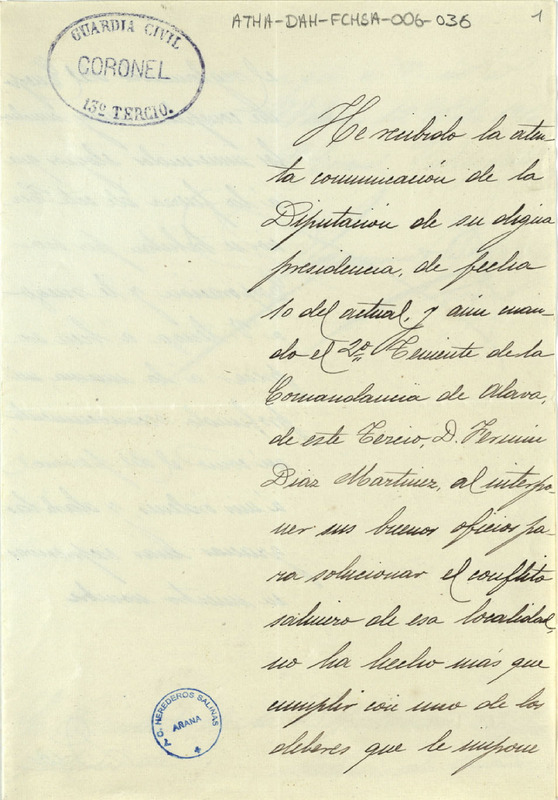 ATHA-DAH-FCHSA-006-036
1
GUARDIA CIVIL
CORONEL
13º TERCIO.
He recibido la aten-
ta comunicación de la
Diputación de su digna
presidencia, de fecha
10 del actual, y aun cuan-
do el 2º Teniente de la
Comandancia de Alava,
de este Tercio, D. Fermin
Diaz Martinez, al interpo-
ner sus buenos oficios pa-
ra solucionar el conflito
salinero de esa localidad,
no ha hecho más que
cumplir con uno de los
deberes que le impone
A. C. HEREDEROS SALINAS
ARANA
4